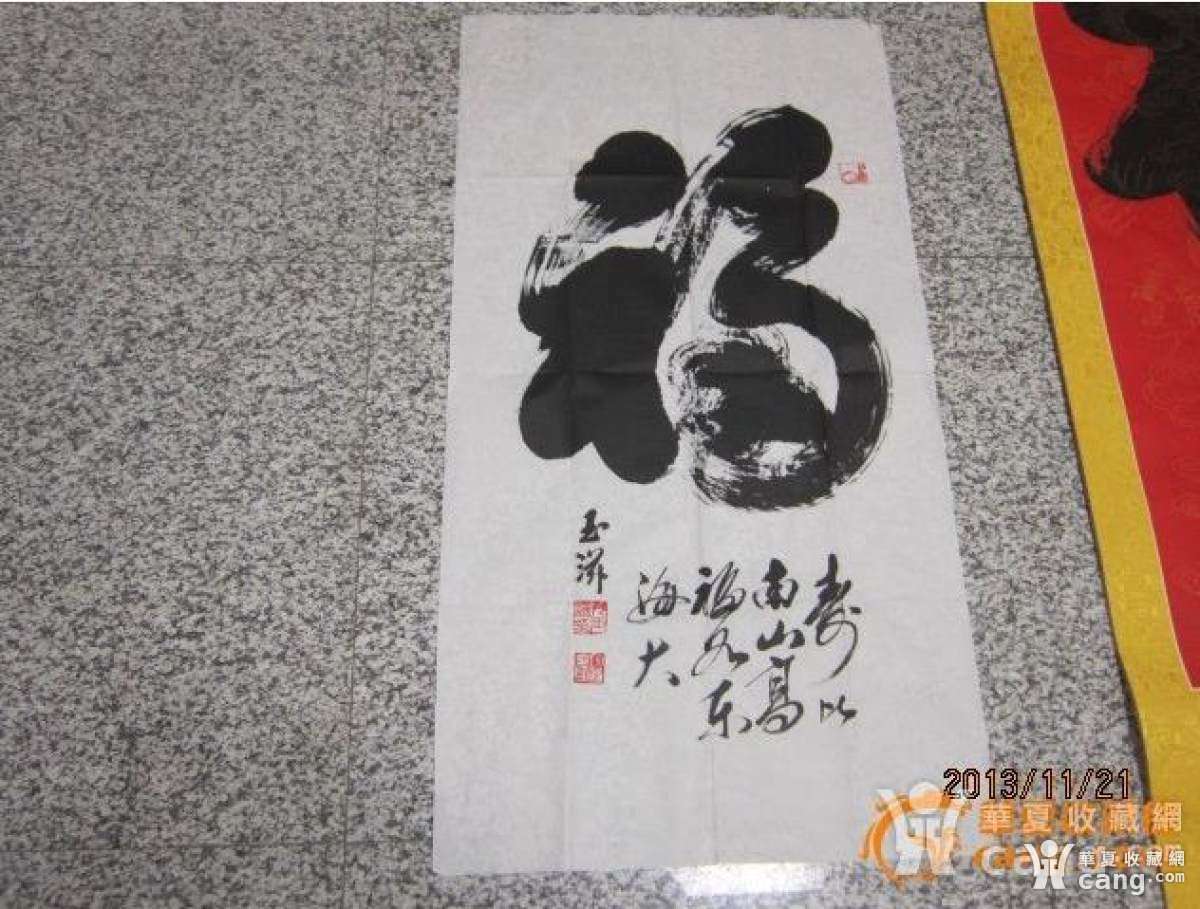 福
寿比
南山高
福如东
海大
玉洴
2013/11/21
華夏收藏網
華夏收藏網
cang.com